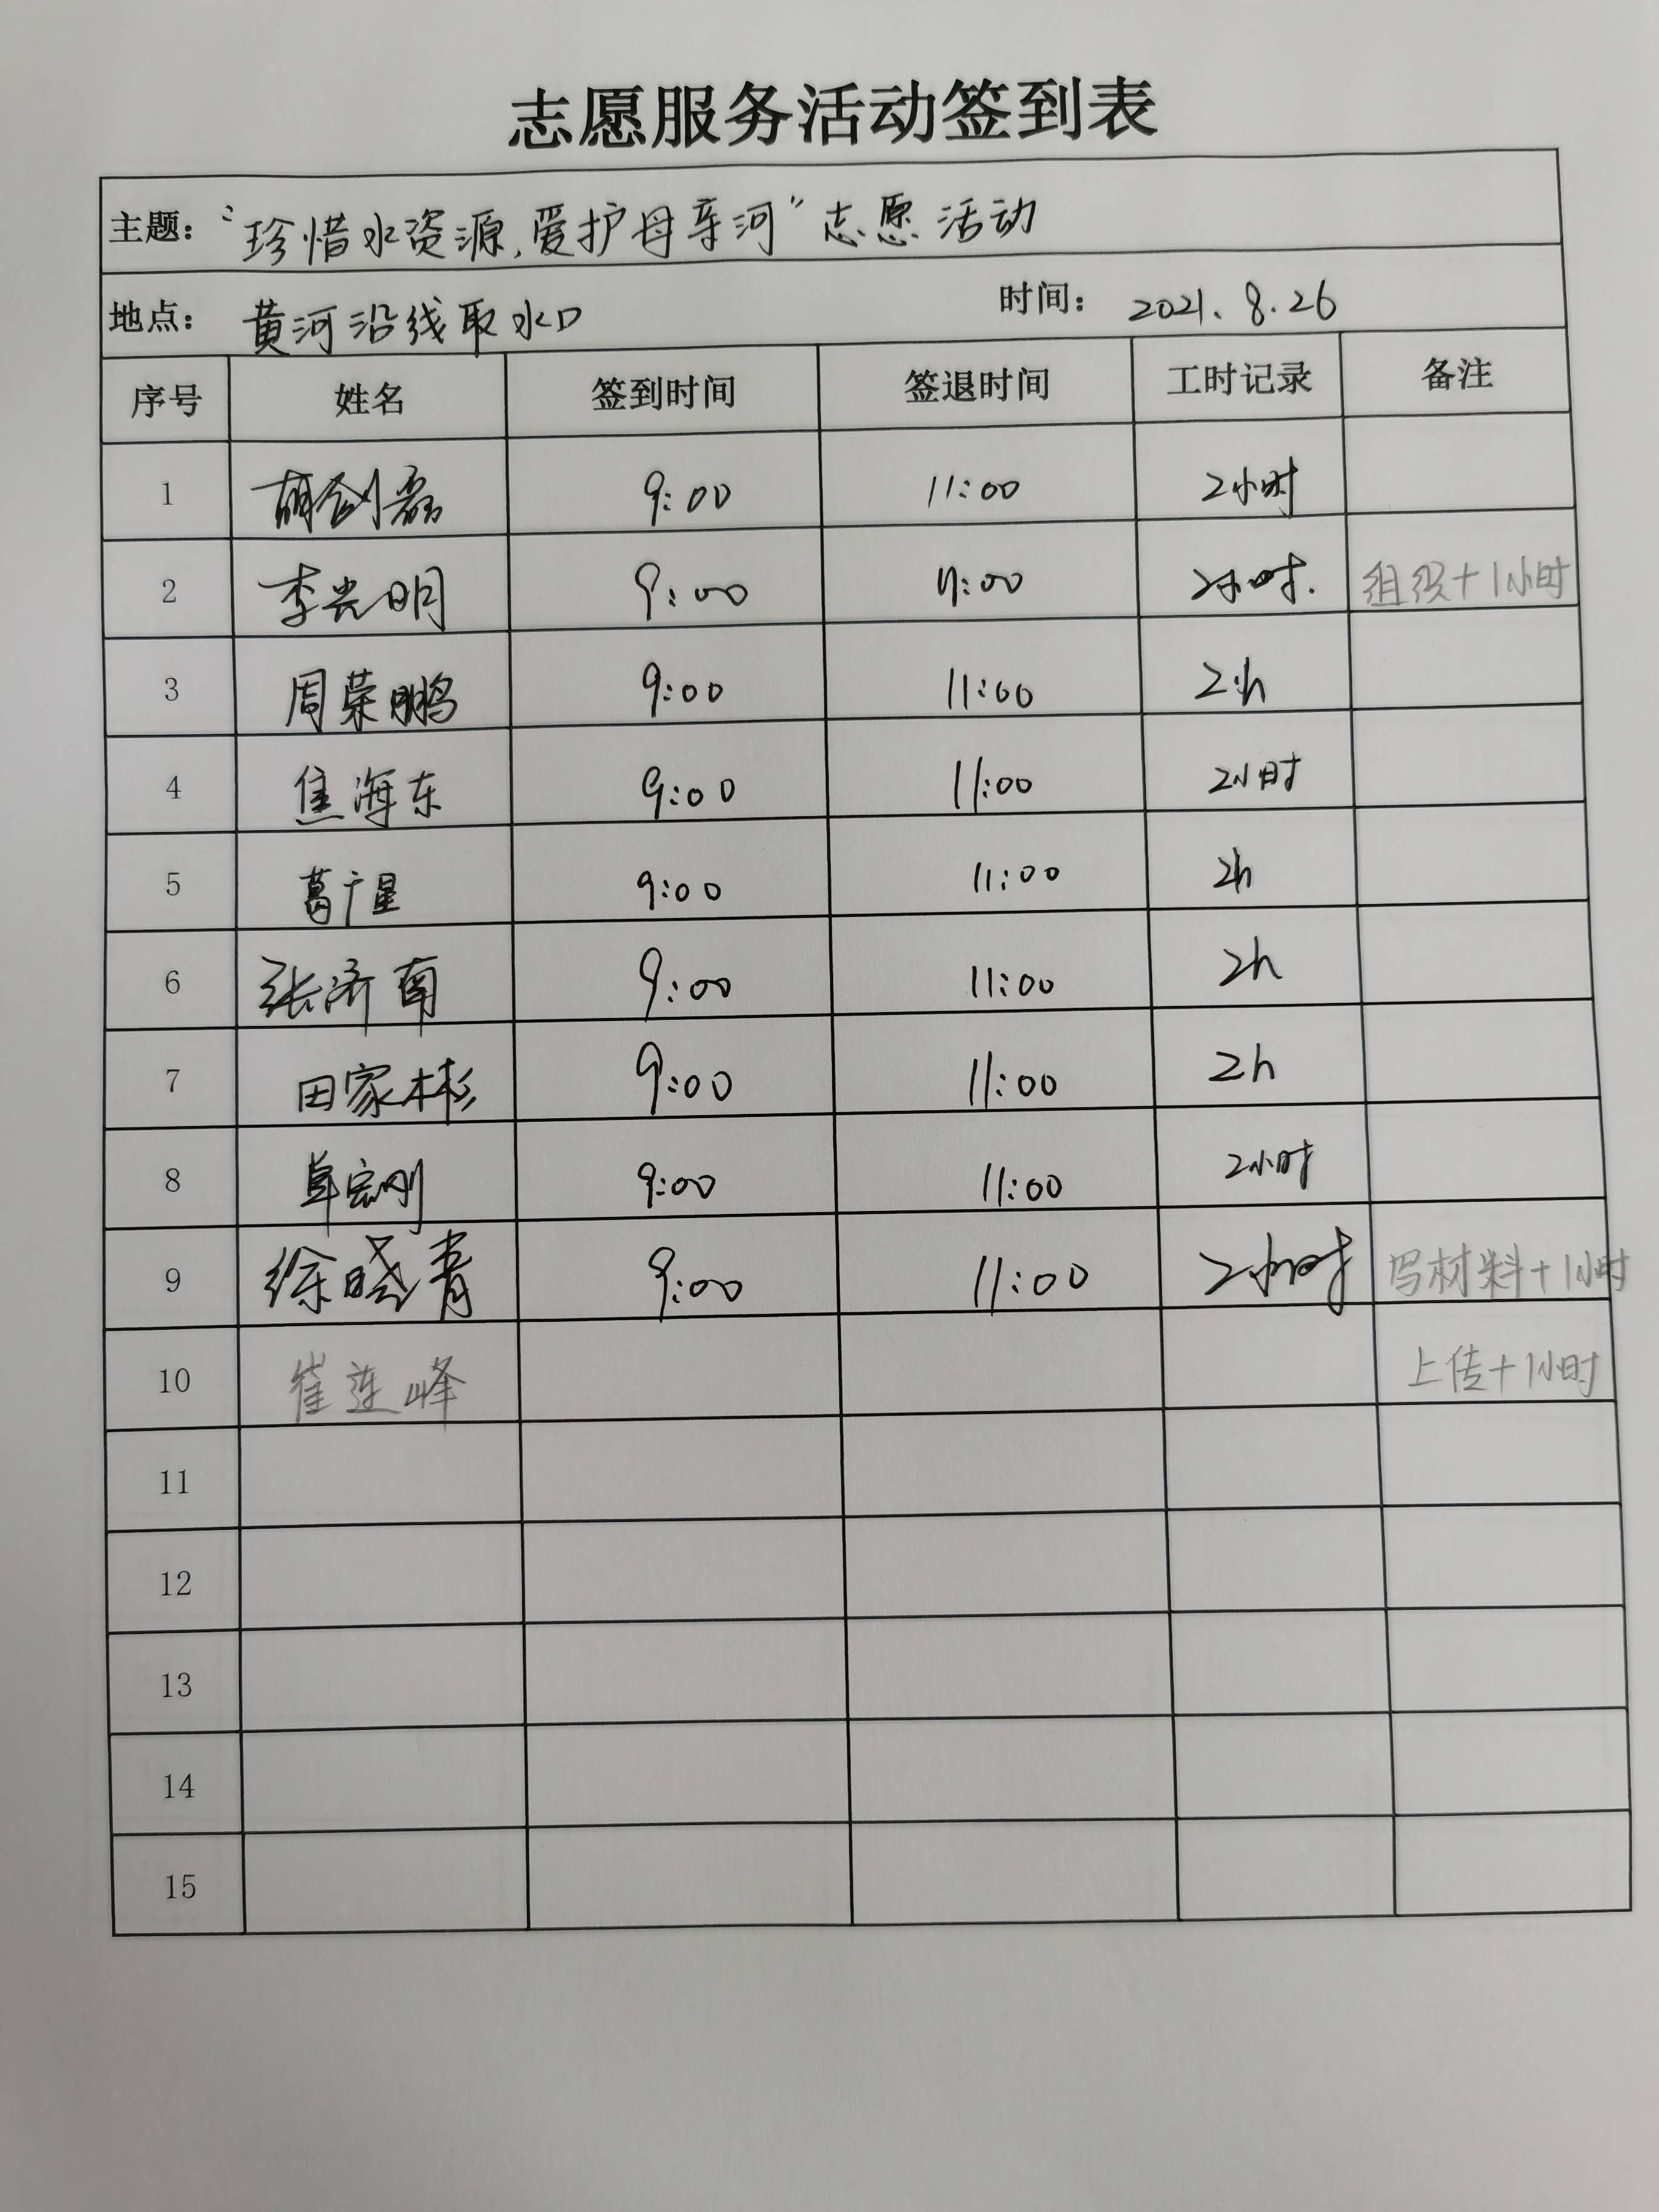 志愿服务活动签到表
主题：“珍惜水资源,爱护母亲河”志愿活动
地点：黄河沿线取水口 时间：2021.8.26
序号 姓名 签到时间 签退时间 工时记录 备注
1 胡剑磊 9:00 11:00 2小时
2 李光明 9:00 11:00 2小时. 组织+1小时
3 周荣鹏 9:00 11:00 2h
4 焦海东 9:00 11:00 2小时
5 葛广星 9:00 11:00 2h
6 张济南 9:00 11:00 2h
7 田家彬 9:00 11:00 2h
8 9:00 11:00 2小时
9 徐晓青 9:00 11:00 2小时 写材料+1小时
10 崔连峰 上传+1小时
11
12
13
14
15